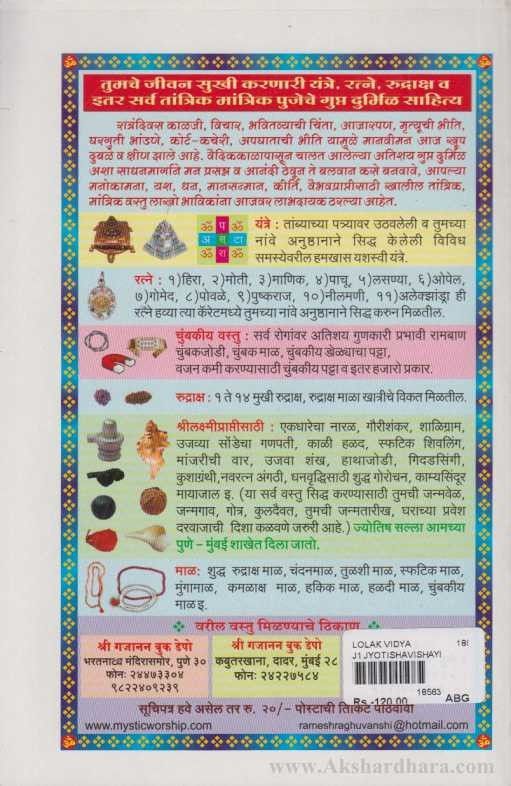 तुमचे जीवन सुखी करणारी यंत्रे, रत्ने, रुद्राक्ष व
इतर सर्व तांत्रिक मांत्रिक पुजेचे गुप्त दुर्मिळ साहित्य
रात्रंदिवस काळजी, विचार, भवितव्याची चिंता, आजारपण, मृत्यूची भीति,
घरगुती भांडणे, कोर्ट-कचेरी, अपघाताची भीति यामुळे मानवीमन आज खूप
दुबळे व क्षीण झाले आहे. वैदिककाळापासून चालत आलेल्या अतिशय गुप्त दुर्मिळ
अशा साधनमार्गाने मन प्रसन्न व आनंदी ठेवून ते बलवान कसे बनवावे, आपल्या
मनोकामना, यश, धन, मानसन्मान, कीर्ति, वैभवप्राप्तीसाठी खालील तांत्रिक,
मांत्रिक वस्तु लाखो भाविकांना आजवर लाभदायक ठरल्या आहेत.
यंत्रे : तांब्याच्या पत्र्यावर उठवलेली व तुमच्या
नांवे अनुष्ठानाने सिद्ध केलेली विविध
समस्येवरील हमखास यशस्वी यंत्रे.
रत्ने : १)हिरा, २)मोती, ३)माणिक, ४)पाचू, ५)लसण्या, ६)ओपेल,
७)गोमेद, ८)पोवळे, ९)पुष्कराज, १०)नीलमणी, ११)अलेक्झांड्रा ही
रत्ने हव्या त्या कॅरेटमध्ये तुमच्या नांवे अनुष्ठानाने सिद्ध करुन मिळतील.
चुंबकीय वस्तु : सर्व रोगांवर अतिशय गुणकारी प्रभावी रामबाण
चुंबकजोडी, चुंबक माळ, चुंबकीय डोळ्याचा पट्टा,
वजन कमी करण्यासाठी चुंबकीय पट्टा व इतर हजारो प्रकार.
रुद्राक्ष : १ ते १४ मुखी रुद्राक्ष, रुद्राक्ष माळा खात्रीचे विकत मिळतील.
श्रीलक्ष्मीप्राप्तीसाठी : एकधारेचा नारळ, गौरीशंकर, शाळिग्राम,
उजव्या सोंडेचा गणपती, काळी हळद, स्फटिक शिवलिंग,
मांजरीची वार, उजवा शंख, हाथाजोडी, गिदडसिंगी,
कुशाग्रंथी, नवरत्न अंगठी, धनवृद्धिसाठी शुद्ध गोरोचन, काम्यसिंदूर
मायाजाल इ. (या सर्व वस्तु सिद्ध करण्यासाठी तुमची जन्मवेळ,
जन्मगाव, गोत्र, कुलदैवत, तुमची जन्मतारीख, घराच्या प्रवेश
दरवाजाची दिशा कळवणे जरुरी आहे.) ज्योतिष सल्ला आमच्या
पुणे – मुंबई शाखेत दिला जातो.
माळ: शुद्ध रुद्राक्ष माळ, चंदनमाळ, तुळशी माळ, स्फटिक माळ,
मुंगामाळ, कमळाक्ष माळ, हकिक माळ, हळदी माळ, चुंबकीय
माळ इ.
वरील वस्तु मिळण्याचे ठिकाण
श्री गजानन बुक डेपो
भरतनाट्य मंदिरासमोर, पुणे ३०
फोनः २४४७३३०४
९८२२४०९२३९
श्री गजानन बुक डेपो
कबुतरखाना, दादर, मुंबई २८
फोनः २४२२७५८४
LOLAK VIDYA
J1 JYOTISHAVISHAYI
18563
Rs.-120.00
ABG
सूचिपत्र हवे असेल तर रु. २०/- पोस्टाची तिकिट पाठवावी
www.mysticworship.com
rameshraghuvanshi@hotmail.com
www.Akshardhara.com